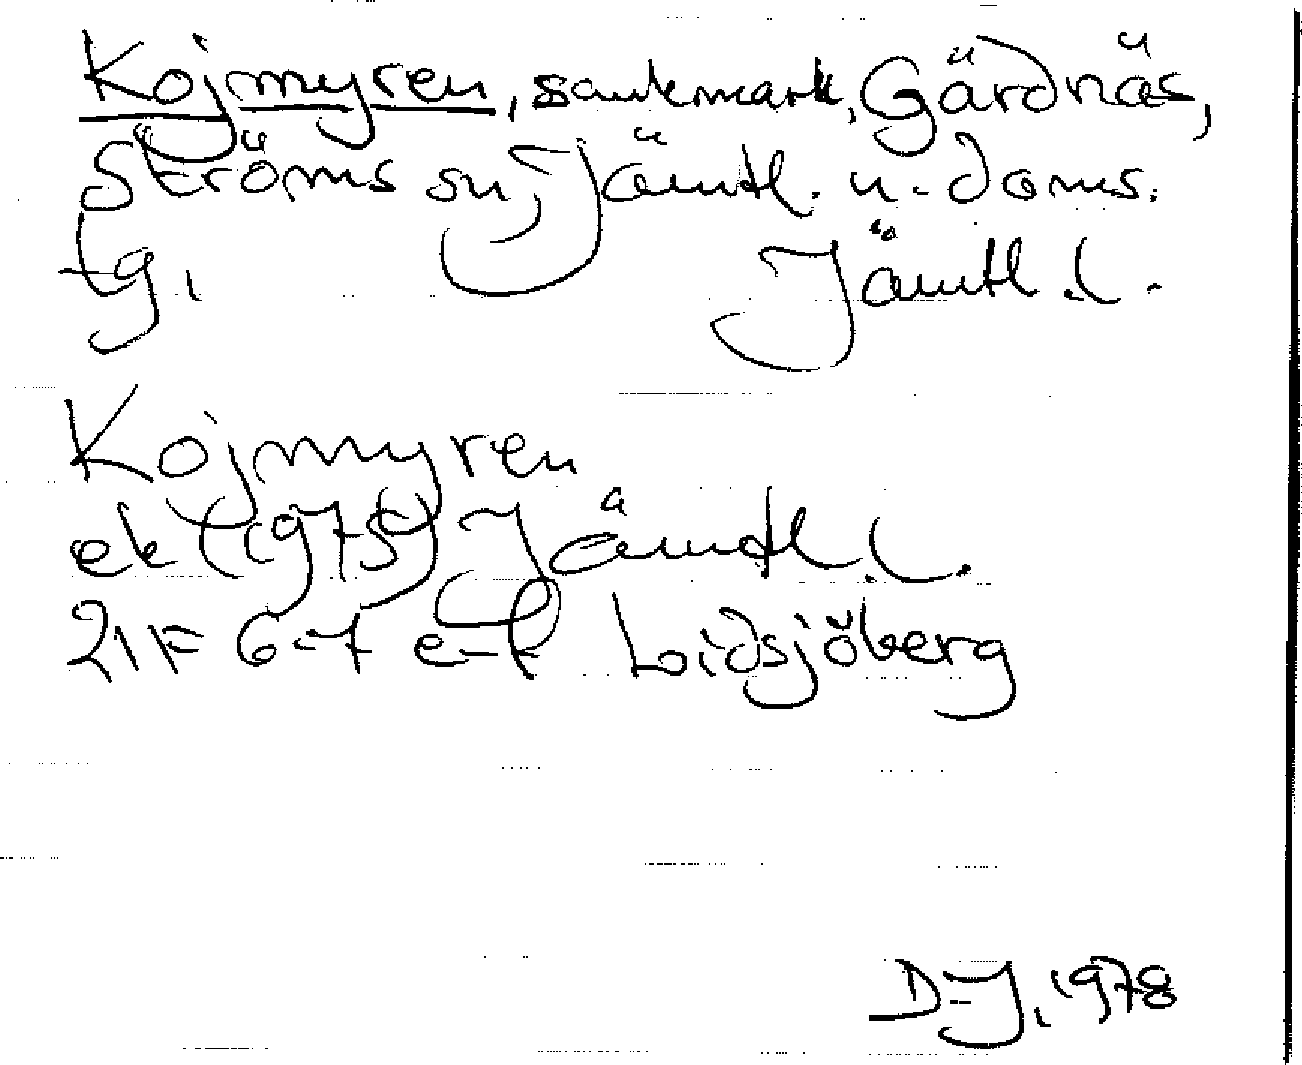 Kojmyren, sankmark, Gärdnäs,
Ströms sn, Jämtl. n. doms.
tg.
Jämtl. l.
Kojmyren
ek (1975) Jämtl. l.
21F 6-7 e-f Loidsjöberg
D-J, 1978